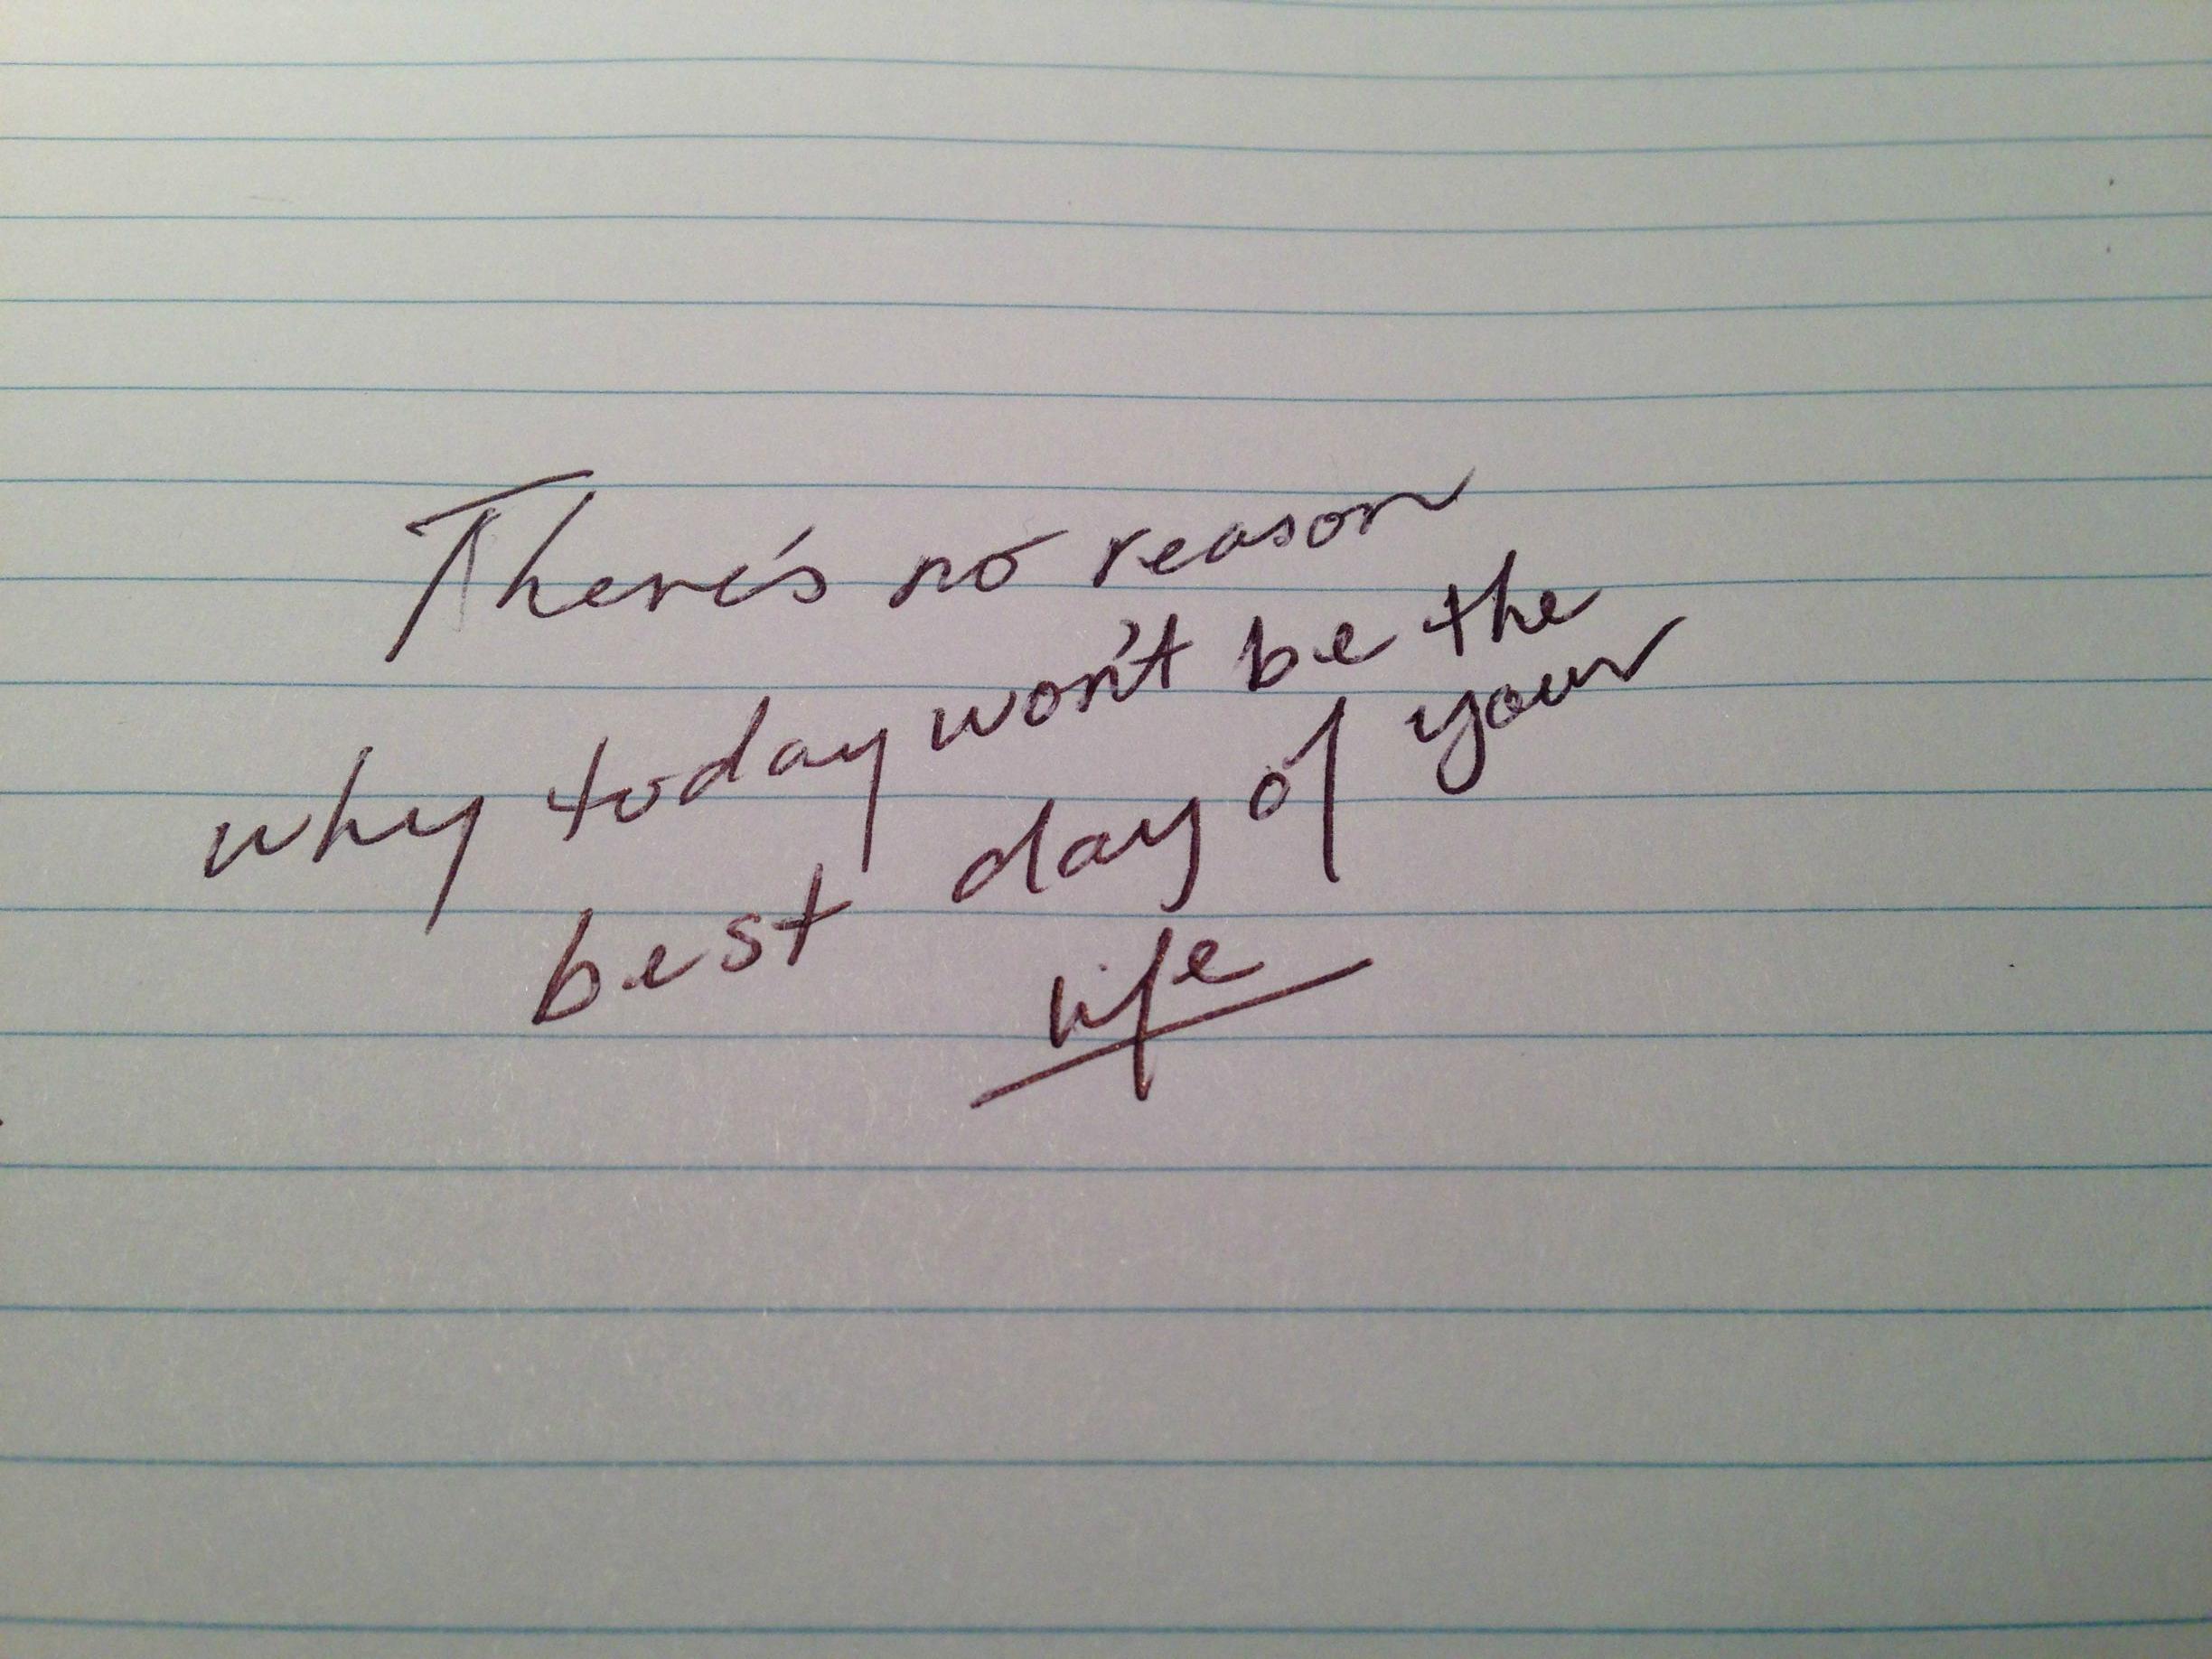 There's no reason
why today won't be the
best day of your
life